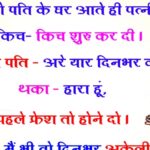 पति के घर आते ही पत्नी
किच- किच शुरु कर दी ।
पति - अरे यार दिनभर
थका - हारा हूं,
पहले फ्रेश तो होने दो ।
मैं भी तो दिनभर अकेली